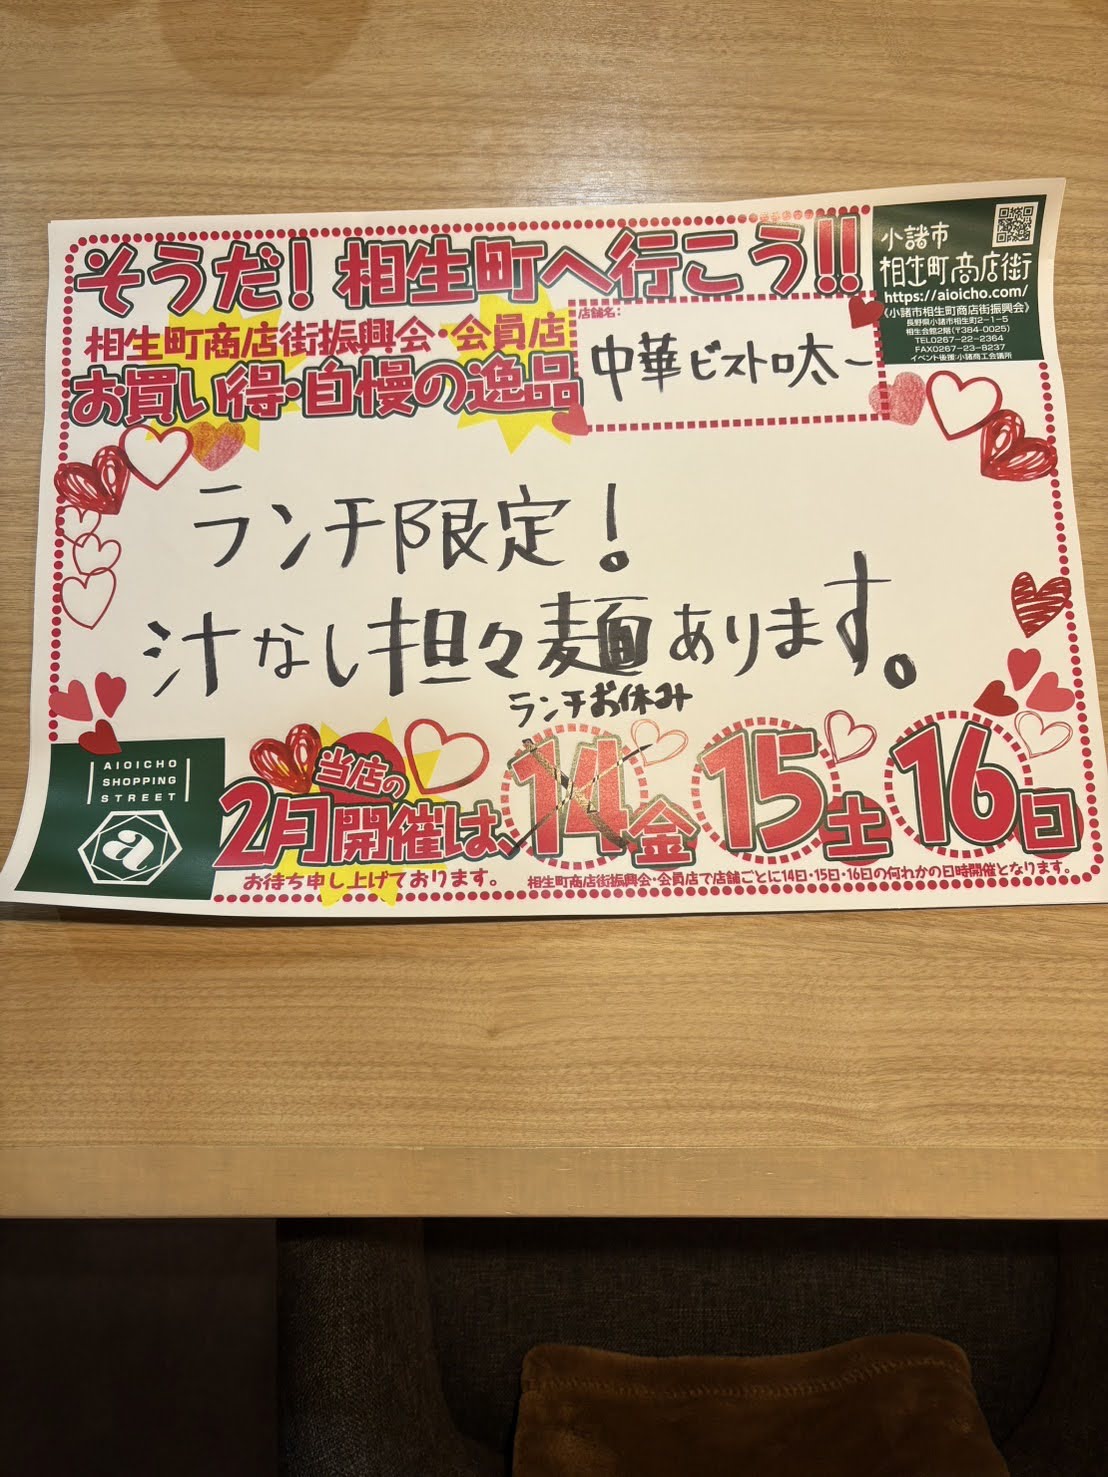 そうだ！相生町へ行こう!!
相生町商店街振興会・会員店
お買い得・自慢の逸品
店舗名:
中華ビストロ太一
小諸市
相生町商店街
https://aioicho.com/
《小諸市相生町商店街振興会》
長野県小諸市相生町2-1-5
相生会館2階(〒384-0025)
TEL0267-22-2364
FAX0267-23-8237
イベント後援:小諸商工会議所
ランチ限定！
汁なし担々麺あります。
ランチお休み
AIOICHO
SHOPPING
STREET
a
当店の
2月開催は、14金 15土 16日
お待ち申し上げております。
相生町商店街振興会・会員店で店舗ごとに14日・15日・16日の何れかの日時開催となります。